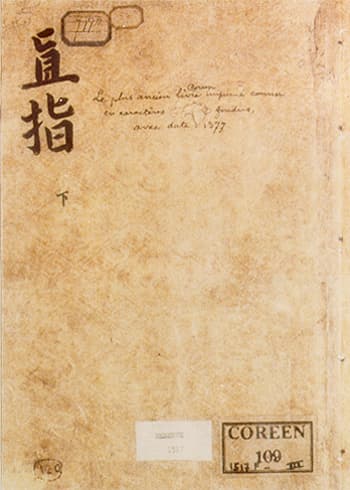 直指
下
Coréen
Le plus ancien livre imprimé connu
en caractères fondus,
avec date 1377
COREEN
109